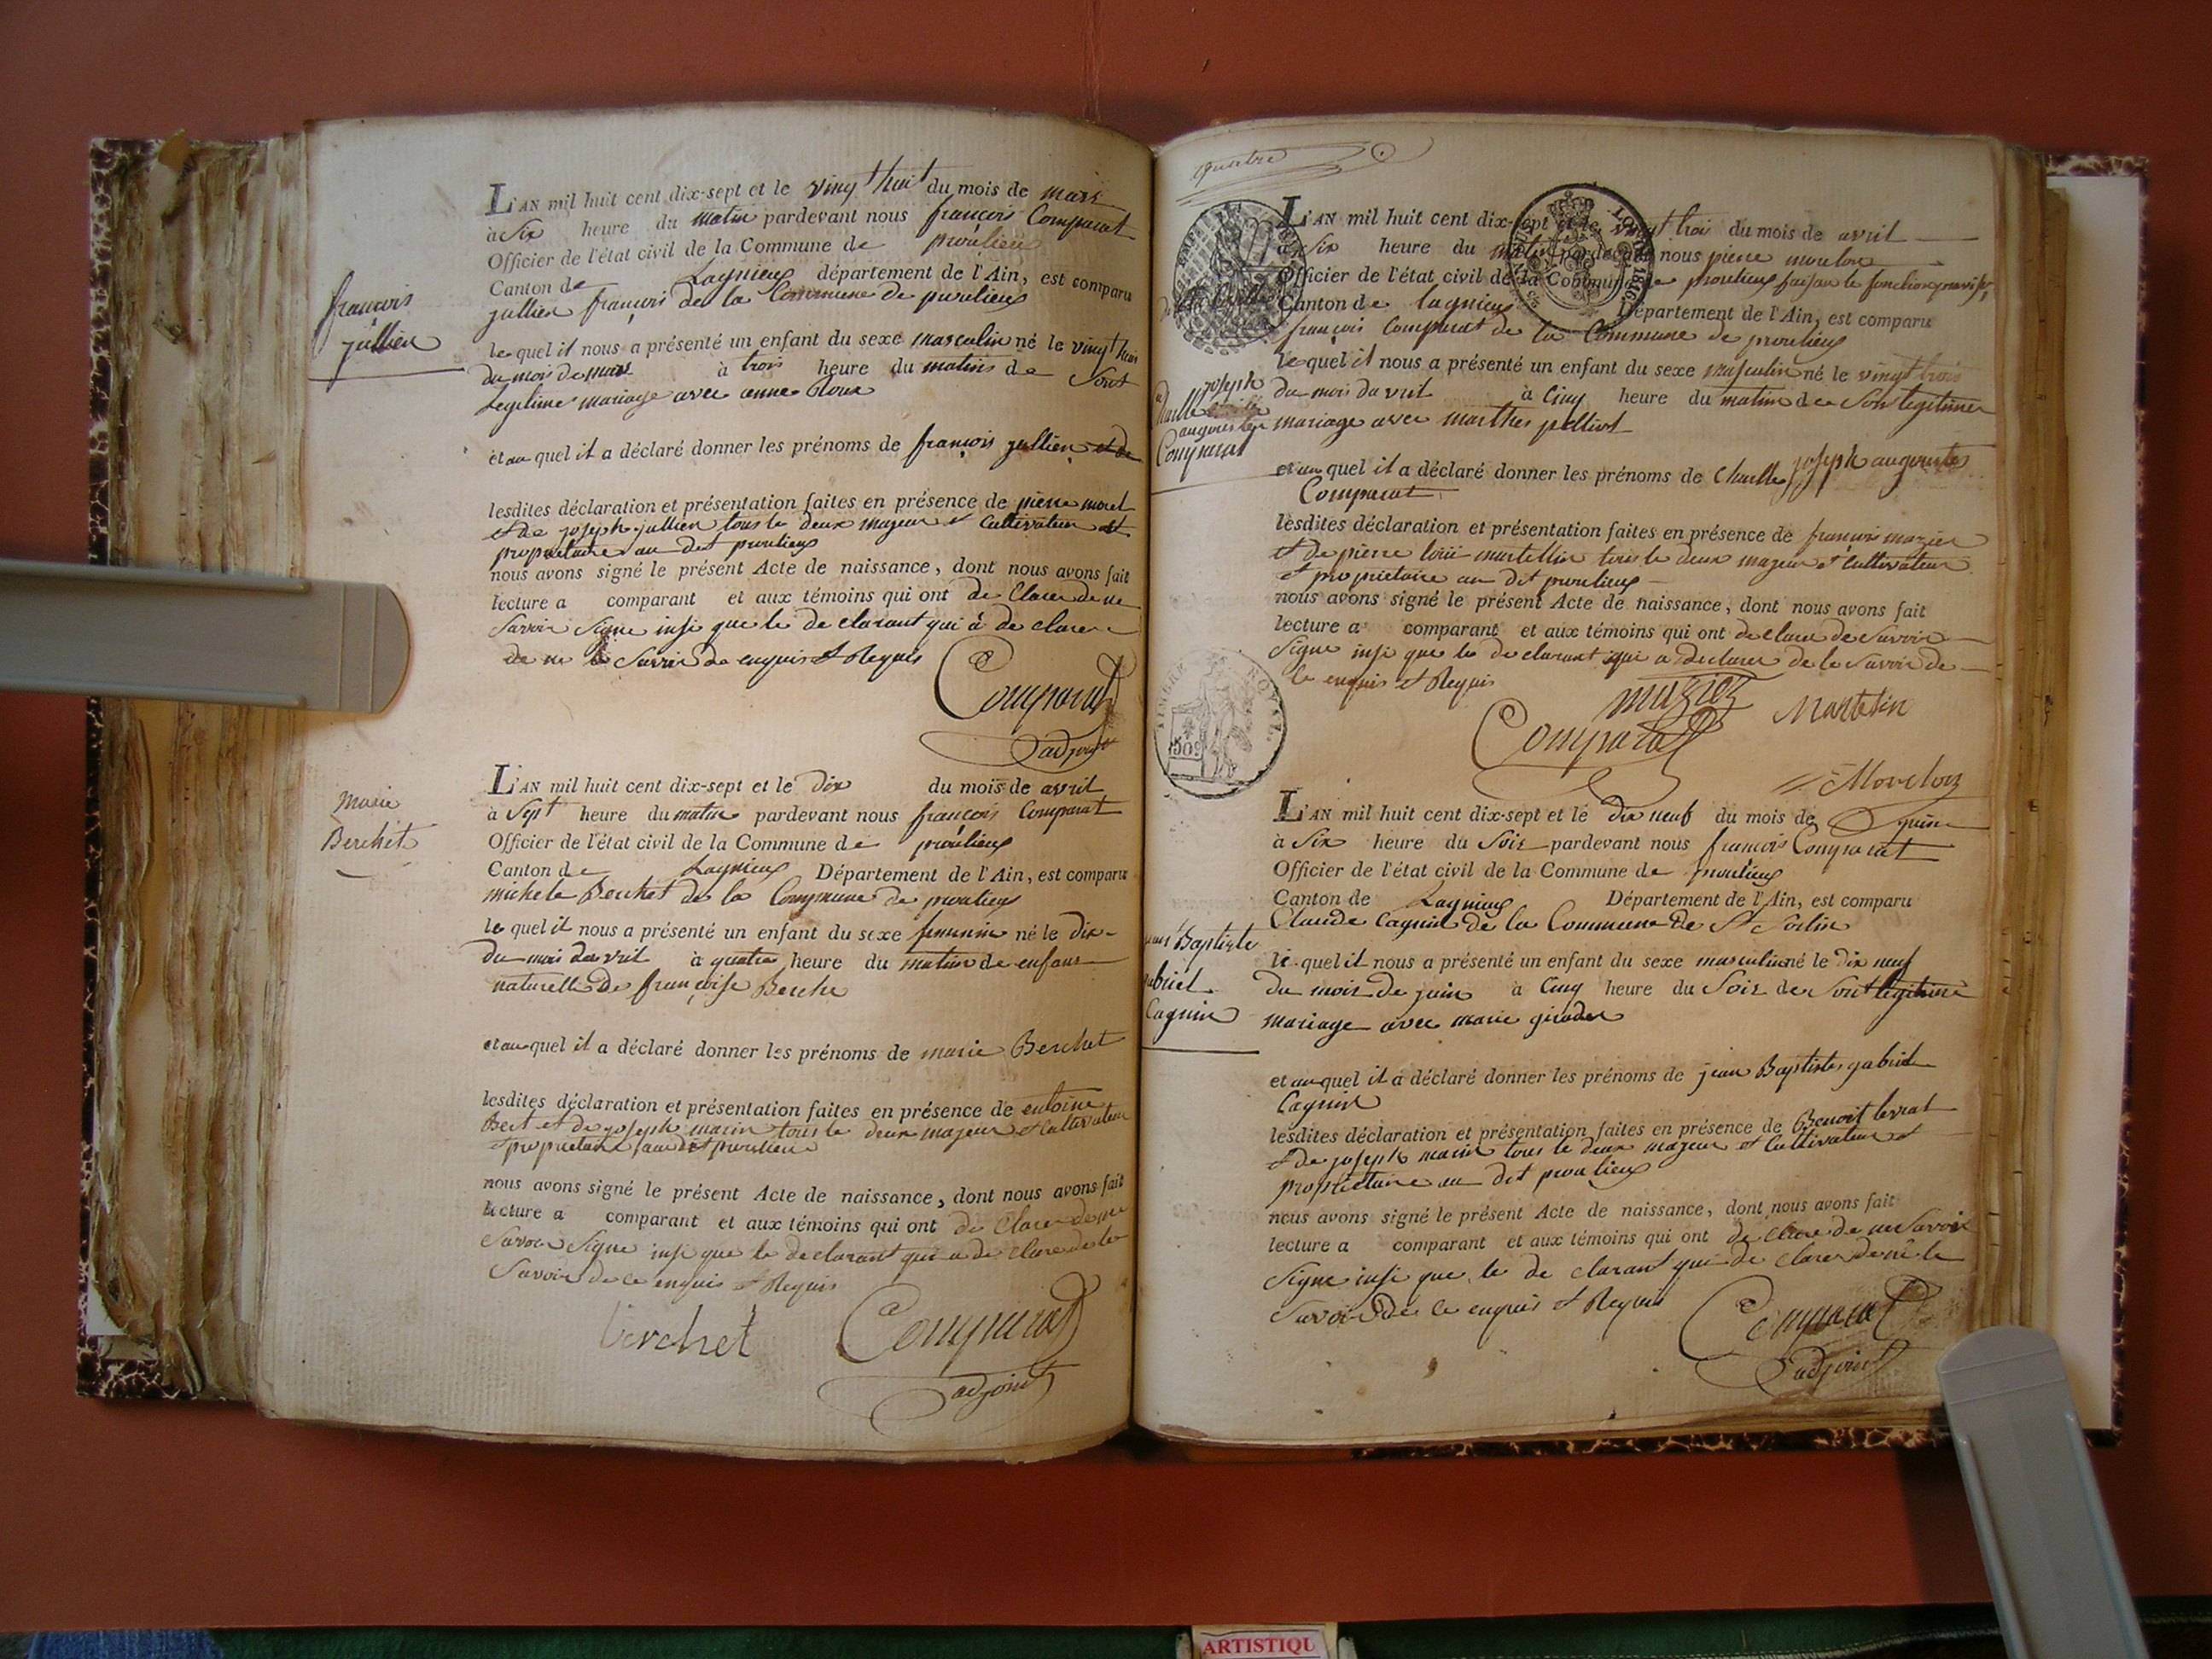 françois
jullien
L'AN mil huit cent dix-sept et le vingt huit du mois de mars
à Six heure du matin pardevant nous françois Comparat
Officier de l'état civil de la Commune de proulieu
Canton de Lagnieu département de l'Ain, est comparu
jullien françois de la Commune de proulieu
le quel il nous a présenté un enfant du sexe masculin né le vingt huit
du mois de mars à trois heure du matin de Sont
Legitime mariage avec anne Roux
et au quel il a déclaré donner les prénoms de françois jullien et de
lesdites déclaration et présentation faites en présence de pierre morel
et de joseph jullien tous le deux majeur et Cultivateur et
propriétaire au dit proulieu
nous avons signé le présent Acte de naissance, dont nous avons fait
lecture a comparant et aux témoins qui ont de Clarer de ne
Savoir Signe insi que le de clarant qui à de clare
de ne le Savoir de enquis et Requis
Comparat
adjoint
Marie
Berchet
L'AN mil huit cent dix-sept et le dix du mois de avril
à Sept heure du matin pardevant nous françois Comparat
Officier de l'état civil de la Commune de proulieu
Canton de Lagnieu Département de l'Ain, est comparu
michele Berchet de la Commune de proulieu
le quel il nous a présenté un enfant du sexe feminin né le dix
du mois davril à quatre heure du matin de enfant
naturelle de françoise Berche
et au quel il a déclaré donner les prénoms de marie Berchet
lesdites déclaration et présentation faites en présence de entoine
Bert et de joseph marin tous le deux majeur et Cultivateur
et propriétaire au dit proulieu
nous avons signé le présent Acte de naissance, dont nous avons fait
lecture a comparant et aux témoins qui ont de Clarer de ne
Savoir Signe insi que le de clarant qui a de clare de le
Savoir de ce enquis et Requis
berchet
Comparat
adjoint
quatre
TIMBRE ROYAL
50c
LOI DE 1816
L'AN mil huit cent dix-sept et le vingt trois du mois de avril
à Six heure du matin pardevant nous pierre moulon
Officier de l'état civil de la Commune de proulieu
Canton de lagnieu Département de l'Ain, est comparu
françois Comparat de la Commune de proulieu
le quel il nous a présenté un enfant du sexe masculin né le vingt trois
du mois davril à Cinq heure du matin de Son legitime
mariage avec marthe
joseph
auguste
Comparat
et au quel il a déclaré donner les prénoms de Charlle joseph auguste
Comparat
lesdites déclaration et présentation faites en présence de françois mazier
et de pierre loui martellin tous le deux majeur et Cultivateur
et propriétaire au dit proulieu
nous avons signé le présent Acte de naissance, dont nous avons fait
lecture a comparant et aux témoins qui ont de clare de Savoir
Signe insi que le de clarant qui a declarer de le Savoir de
le enquis et Requis
mazier
Martelin
Comparat
L'AN mil huit cent dix-sept et le dix neuf du mois de juin
à Six heure du Soir pardevant nous françois Comparat
Officier de l'état civil de la Commune de proulieu
Canton de Lagnieu Département de l'Ain, est comparu
Claude Cagnin de la Commune de St Sorlin
le quel il nous a présenté un enfant du sexe masculin né le dix neuf
du mois de juin à Cinq heure du Soir de Sont legitime
mariage avec marie
Baptiste
Cagnin
et au quel il a déclaré donner les prénoms de jean Baptiste gabriel
Cagnin
lesdites déclaration et présentation faites en présence de Benoit levrat
et de joseph marin tous le deux majeur et Cultivateur et
propriétaire au dit proulieu
nous avons signé le présent Acte de naissance, dont nous avons fait
lecture a comparant et aux témoins qui ont de clare de ne Savoir
Signe insi que le de clarant qui de clarer de ne le
Savoir de ce enquis et Requis
Comparat
adjoint
ARTISTIQU